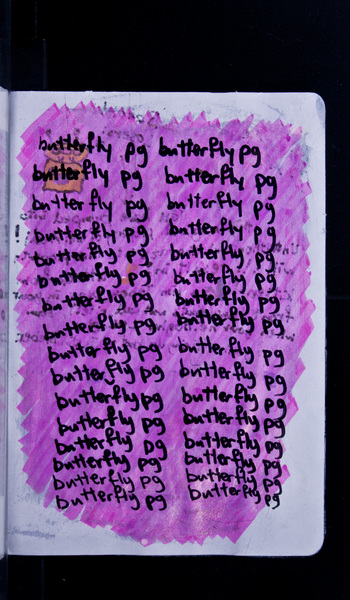 butterfly pg butterfly pg
butterfly pg butterfly pg
butterfly pg butterfly pg
butterfly pg butterfly pg
butterfly pg butterfly pg
butterfly pg butterfly pg
butterfly pg butterfly pg
butterfly pg butterfly pg
butterfly pg butterfly pg
butterfly pg butterfly pg
butterfly pg butterfly pg
butterfly pg butterfly pg
butterfly pg butterfly pg
butterfly pg butterfly pg
butterfly pg butterfly pg
butterfly pg butterfly pg